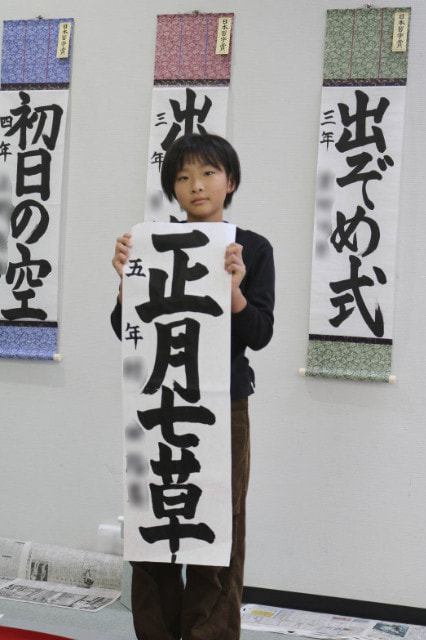 日本習字賞
出ぞめ式
三年
日本習字賞
出
三年
正月七草
五年
日本習字賞
初日の空
四年